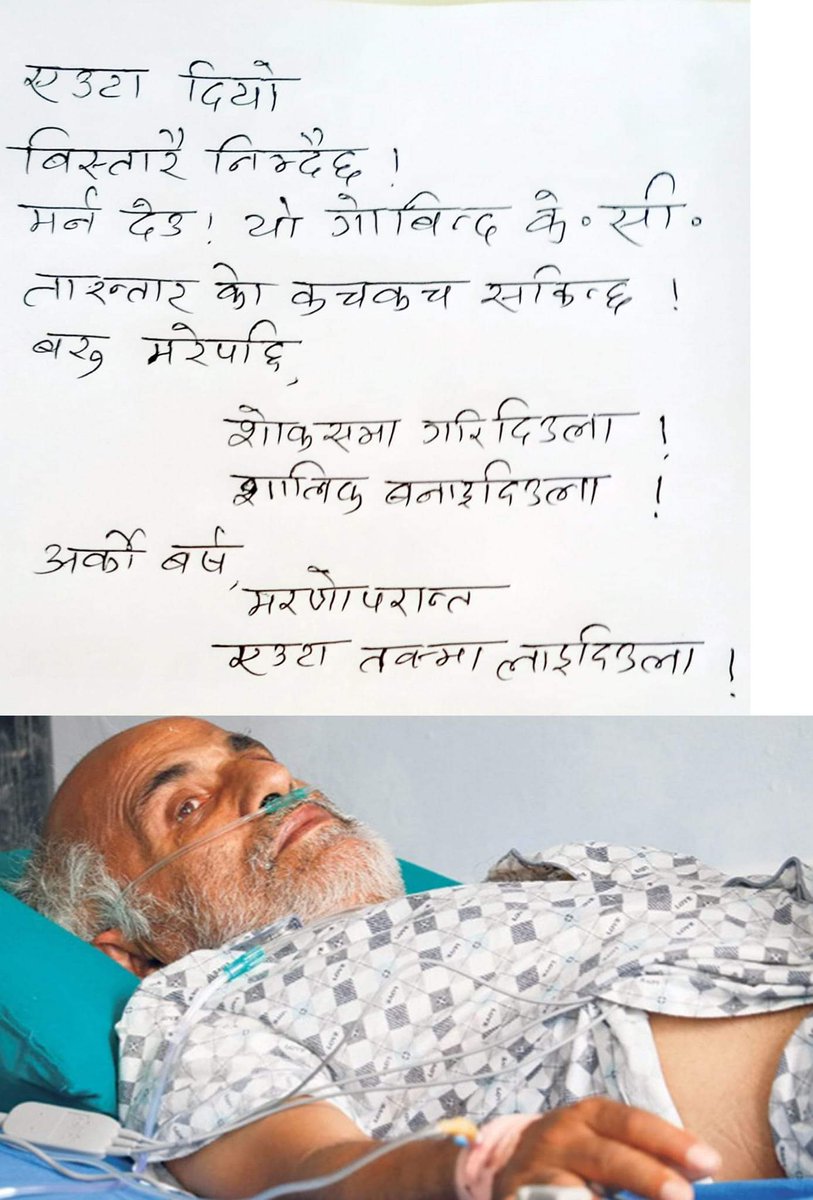 एउटा दियो
बिस्तारै निभ्दैछ !
मर्न देउ ! यो गोबिन्द के॰ सी॰
तारन्तार को कचकच सकिन्छ !
बरु मरेपछि,
शोकसभा गरिदिउला !
शालिक बनाइदिउला !
अर्को बर्ष,
मरणोपरान्त
एउटा तक्मा लाइदिउला !